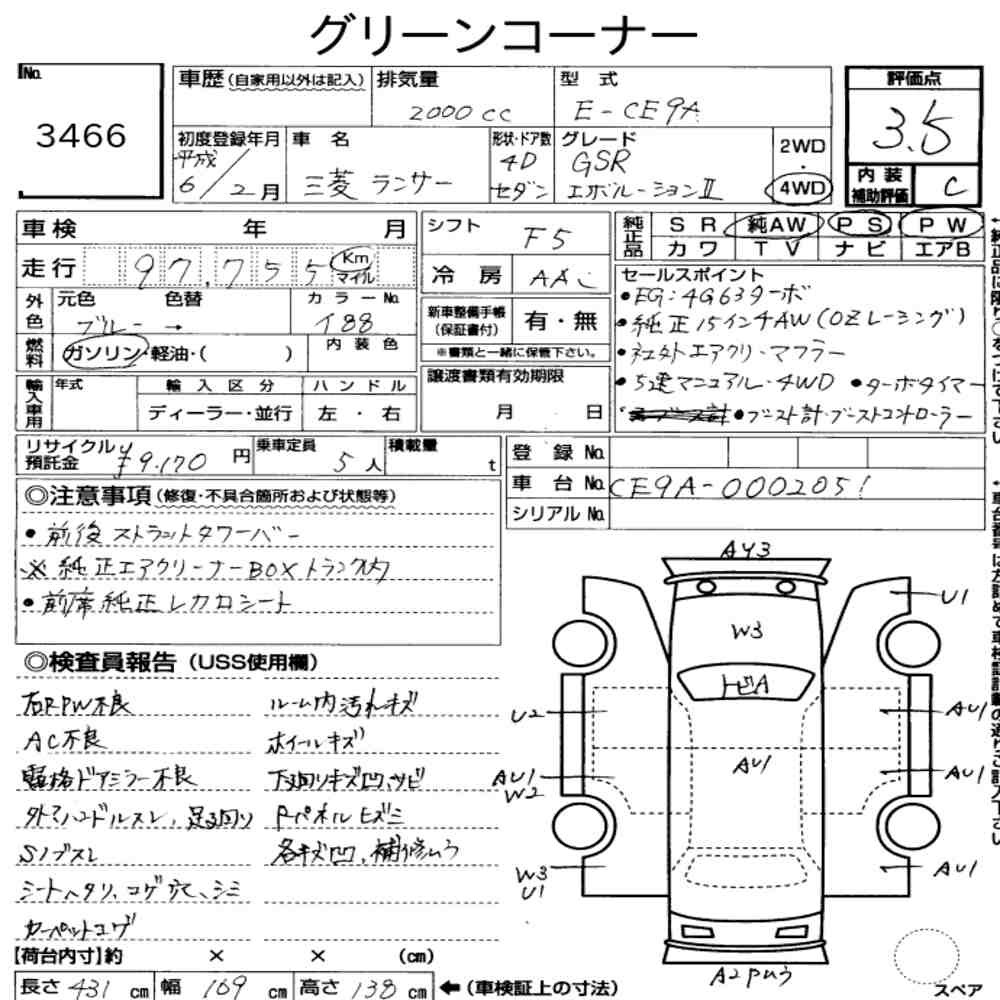 グリーンコーナー
No.
3466
車歴(自家用以外は記入)
排気量
2000cc
型 式
E-CE9A
評価点
3.5
初度登録年月
平成
6/2月
車 名
三菱 ランサー
形状・ドア数
4D
セダン
グレード
GSR
エボリューションⅡ
2WD
・
4WD
内 装
補助評価
C
車検 年 月
走行 97,755 Km
マイル
外色
元色 色替
ブルー →
カラーNo.
燃料
ガソリン・軽油・( )
内 装 色
輸入車用
年式
輸 入 区 分
ディーラー・並行
ハ ン ド ル
左 ・ 右
シフト
F5
冷 房
AAC
新車整備手帳
(保証書付)
有・無
※書類と一緒に保管下さい。
譲渡書類有効期限
月 日
純正品
S R 純AW P S P W
カ ワ T V ナ ビ エアB
セールスポイント
・EG:4G63ターボ
・純正15インチAW(OZレーシング)
・社外エアクリ・マフラー
・5速マニュアル・4WD ・ターボタイマー
・ブースト計・ブーストコントローラー
リサイクル
預託金
¥9,170 円
乗車定員
5人
積載量
t
登 録 No.
車 台 No. CE9A-0002051
シリアルNo.
◎注意事項(修復・不具合箇所および状態等)
・前後ストラットタワーバー
※純正エアクリーナーBOXトランク内
・前席純正レカロシート
◎検査員報告(USS使用欄)
右RPW不良
AC不良
電格ドアミラー不良
S/ブスレ
シートヘタリ、コゲ穴、シミ
カーペットコゲ
ルーム内汚れキズ
ホイールキズ
下廻りキズ凹、サビ
Rパネルヒズミ
各キズ凹、補修ムラ
AY3
W3
トビA
U1
U2
AU1
AU1
AU1
W2
AU1
W3
U1
AU1
A2Pムラ
スペア
【荷台内寸】約 × × (cm)
長さ 431 cm 幅 169 cm 高さ 138 cm ←(車検証上の寸法)